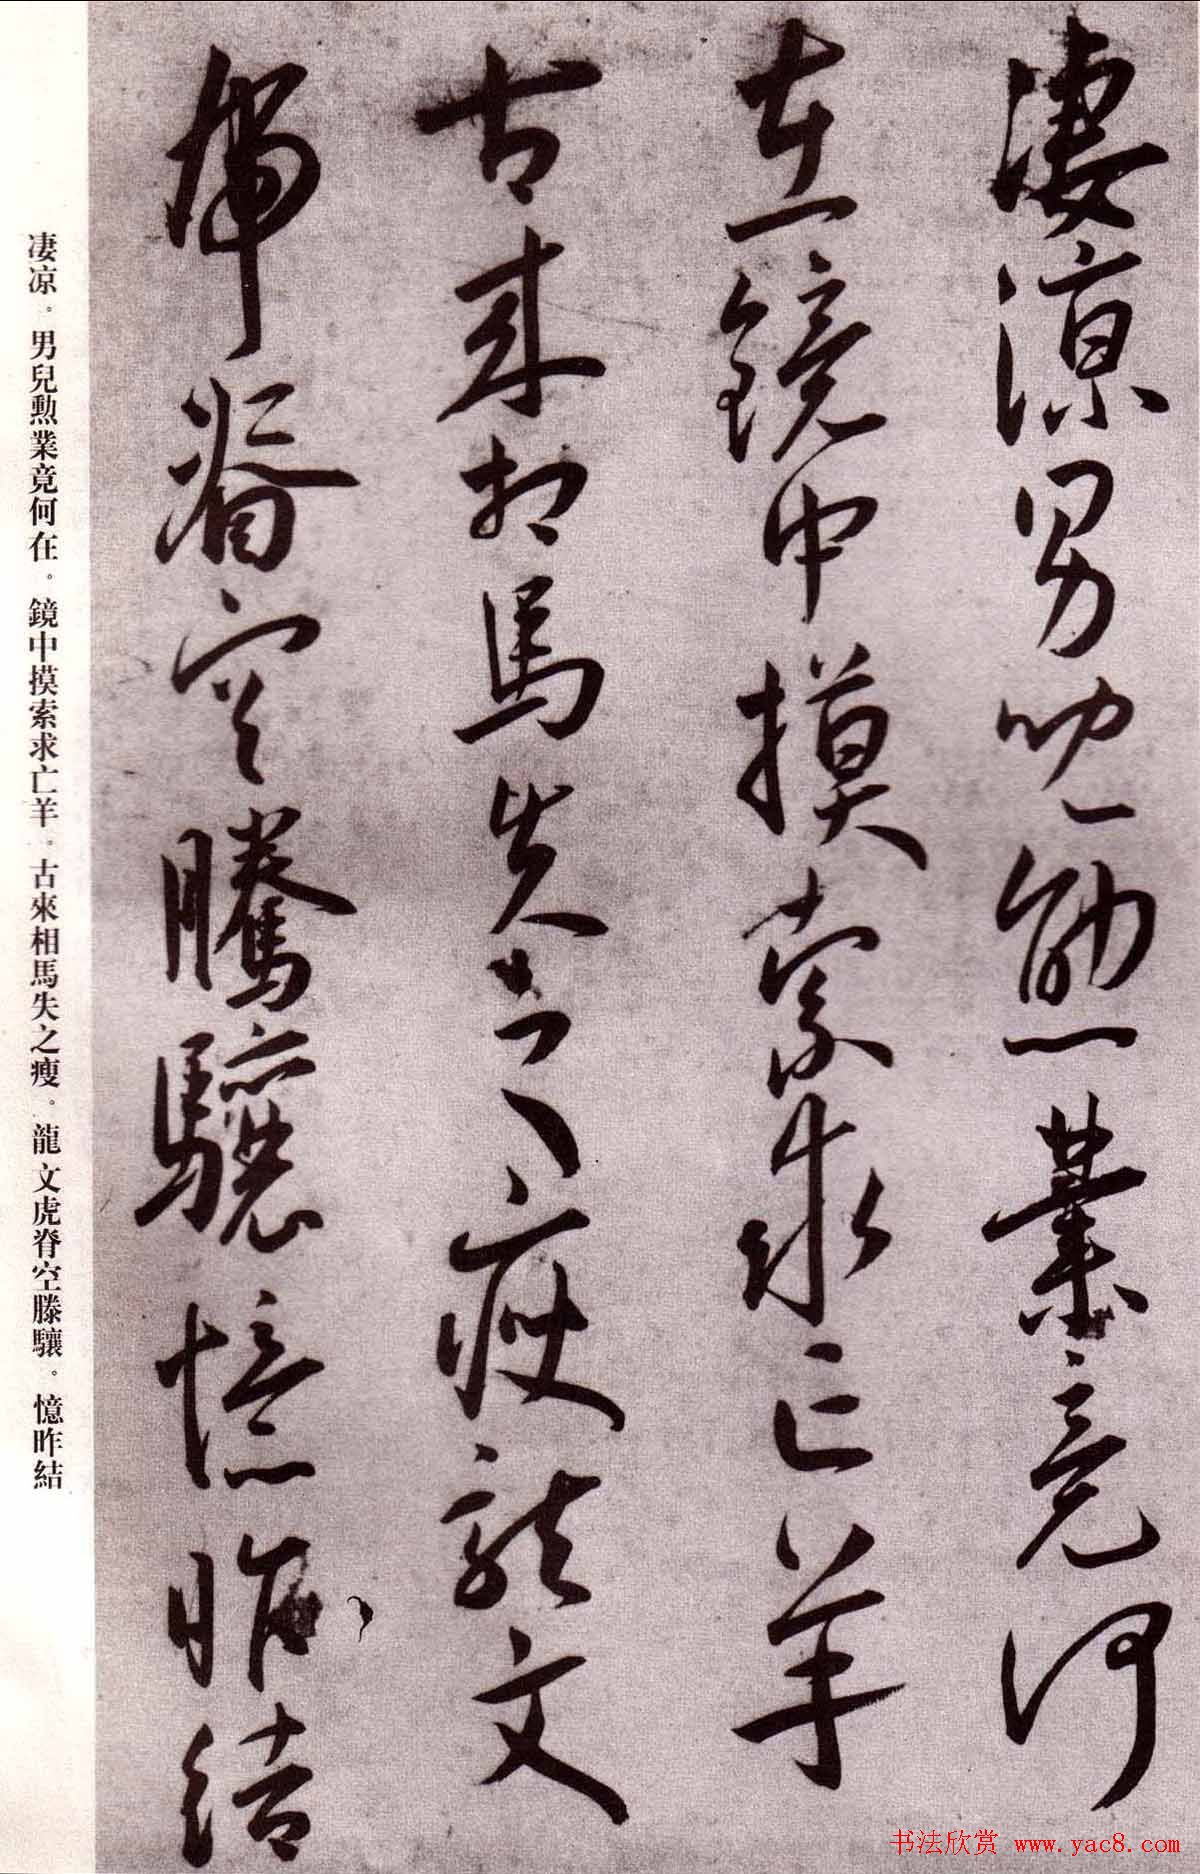 凄涼男兒勳業竟何
在鏡中摸索求亡羊
古来相馬失之瘦龍文
虎脊空騰驤憶昨結
凄凉。男兒勳業竟何在。鏡中摸索求亡羊。古來相馬失之瘦。龍文虎脊空騰驤。憶昨結
书法欣赏 www.yac8.com